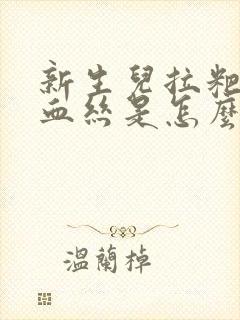 新生兒拉粑
血絲是怎麼
溫蘭掉